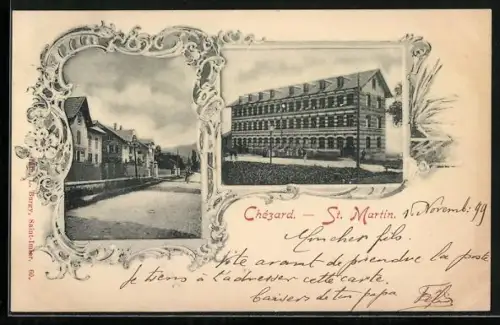 Chézard. — St. Martin. 1 Novemb. 99
Mon cher fils.
Vite avant de prendre la poste
Je tiens à t'adresser cette carte.
Baisers de ton papa
Burgy, Saint-Imier. 65.